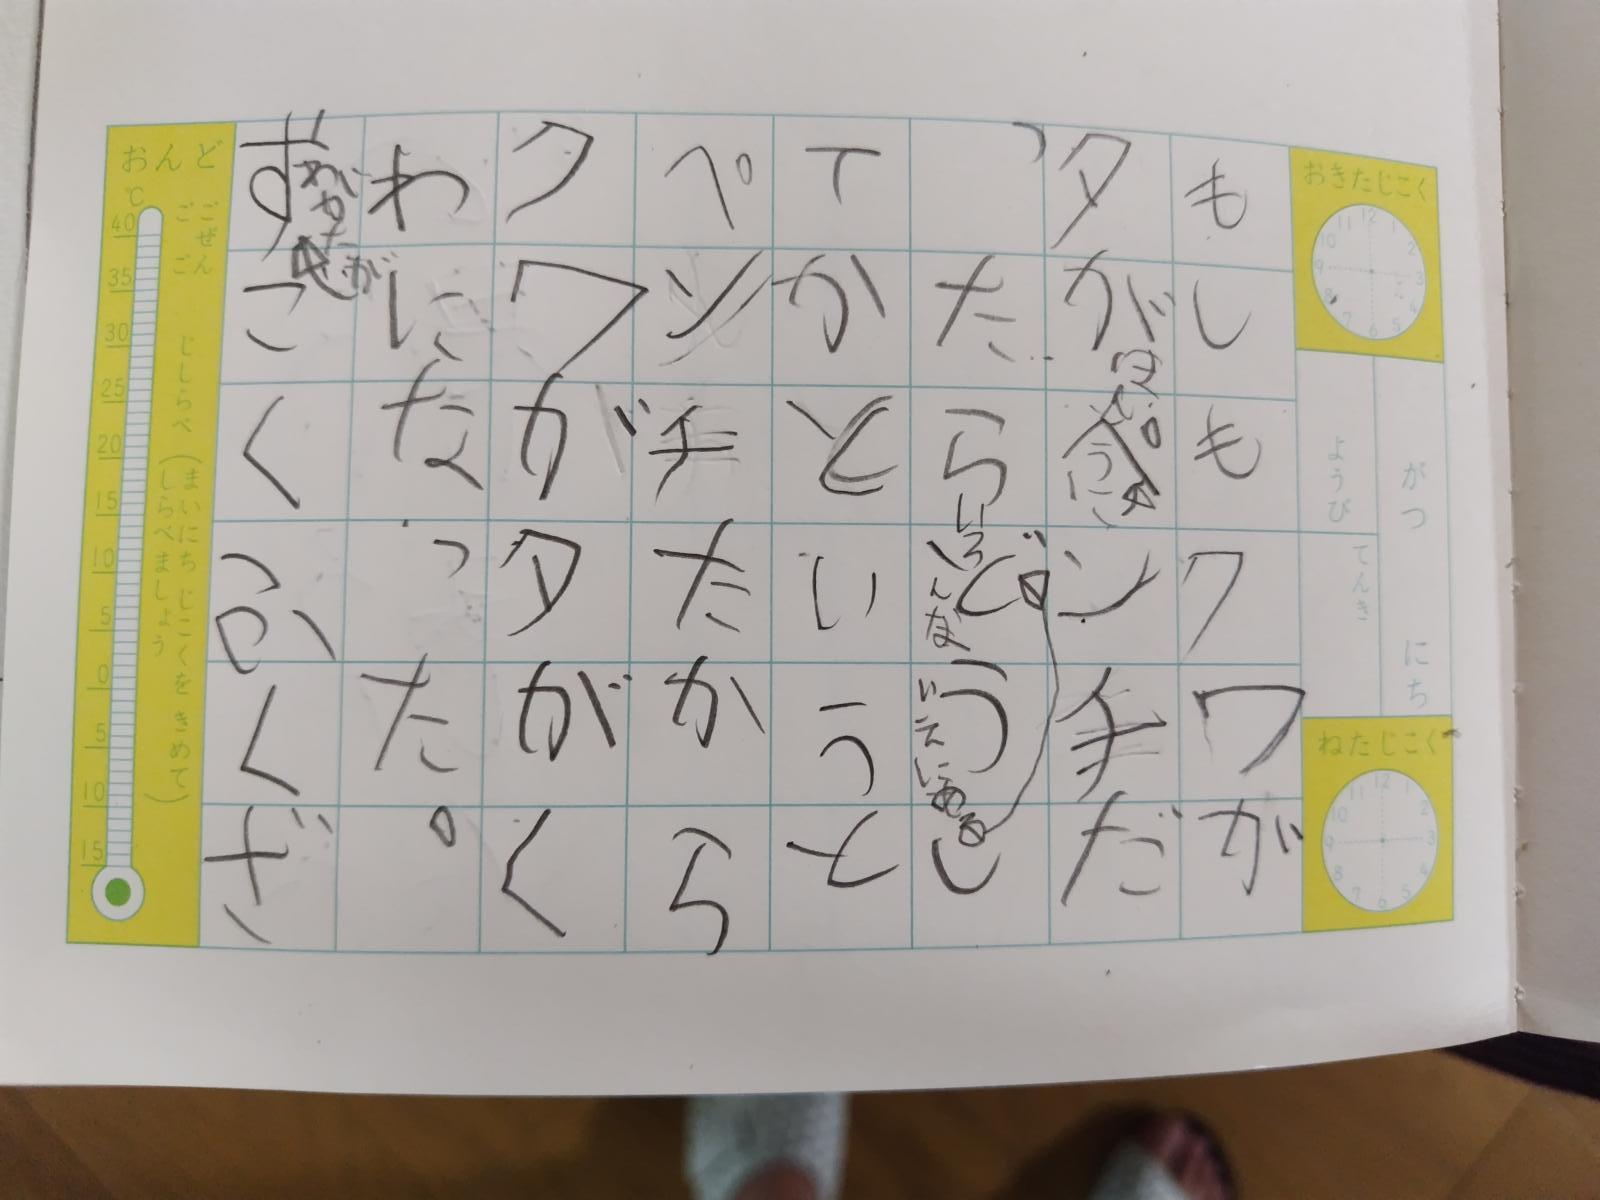 おきたじこく
がつ にち
ようび てんき
ねたじこく
もしもクワが
タがペンチだ
ったらどうし
いろんな
いえにある
てかというと
ペンチたから
クワがタがく
わになった。
すごくかくざ
おんど
℃
ごぜん
ごご
じしらべ
(まいにち じこくを きめて
しらべましょう)
40
35
30
25
20
15
10
5
0
5
10
15